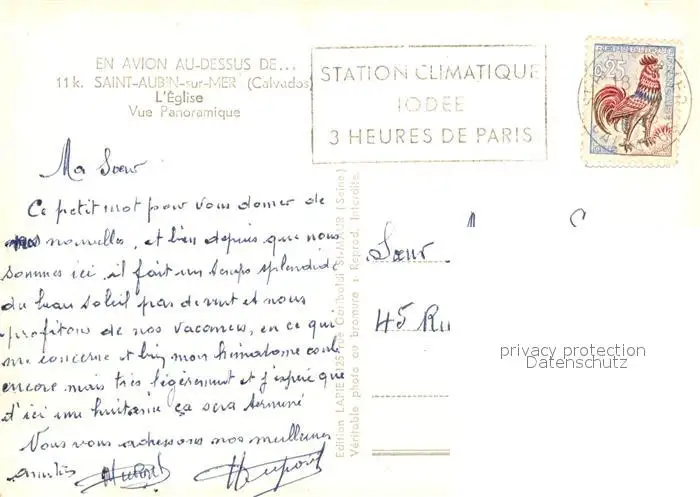 EN AVION AU-DESSUS DE...
11 k. SAINT-AUBIN-sur-MER (Calvados)
L'Église
Vue Panoramique
STATION CLIMATIQUE
IODÉE
3 HEURES DE PARIS
0,25
Ma Sœur
Ce petit mot pour vous donner de
nos nouvelles, et bien depuis que nous
sommes ici il fait un temps splendide
du beau soleil pas de vent et nous
profitons de nos vacances, en ce qui
me concerne et bien mon hématome coule
encore mais très légèrement et j'espère que
d'ici une huitaine ça sera terminé
Nous vous adressons nos meilleures
amitiés
Edition LAPIE, 125, rue Garibaldi St-MAUR (Seine)
Véritable photo au bromure : Reprod. Interdite.
Sœur
45 Ru
privacy protection
Datenschutz